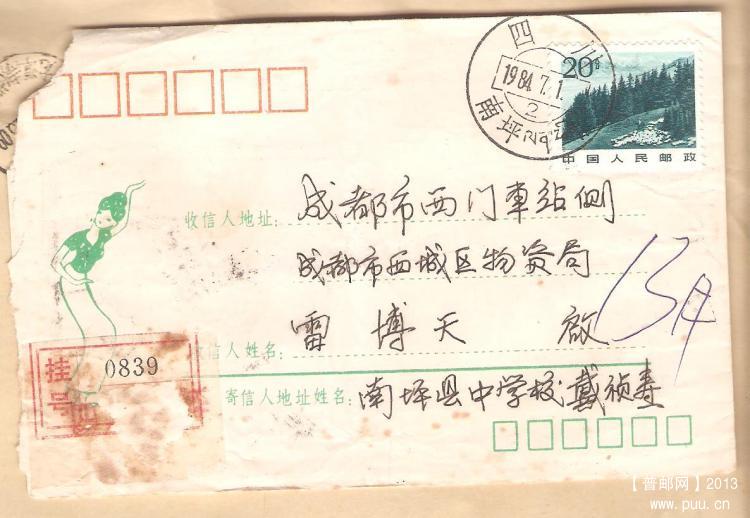 四川
1984.7.1
2
南坪
20分
中国人民邮政
收信人地址: 成都市西门車站侧
成都市西城区物资局
收信人姓名: 雷博天 啟
13A
挂号 0839
寄信人地址姓名: 南坪县中学校戴祯寿
【普邮网】2013
www.puu.cn